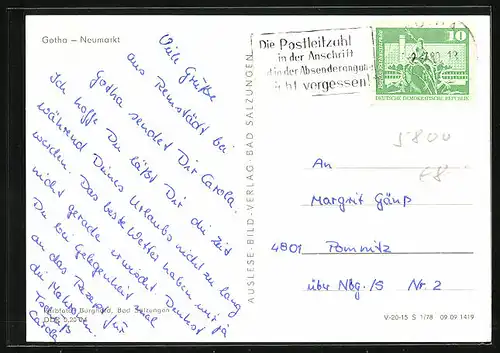 Gotha – Neumarkt
Viele Grüße
aus Remstädt bei
Gotha sendet Dir Carola.
Ich hoffe Du läßt Dir die Zeit
während Deines Urlaubs nicht zu lang
werden. Das beste Wetter haben wir ja
nicht gerade erwischt. Denkst
Du bei Gelegenheit mal
an das Rezept für
die
Tschüß
Carola
Farbfoto: Burghard, Bad Salzungen
AUSLESE-BILD-VERLAG · BAD SALZUNGEN
Die Postleitzahl
in der Anschrift
in der Absenderangabe
nicht vergessen!
10
DEUTSCHE DEMOKRATISCHE REPUBLIK
5800
An
Margrit Gänß
4801 Pomnitz
über Nbg./S Nr. 2
V-20-15 S 1/78 09 09 1419